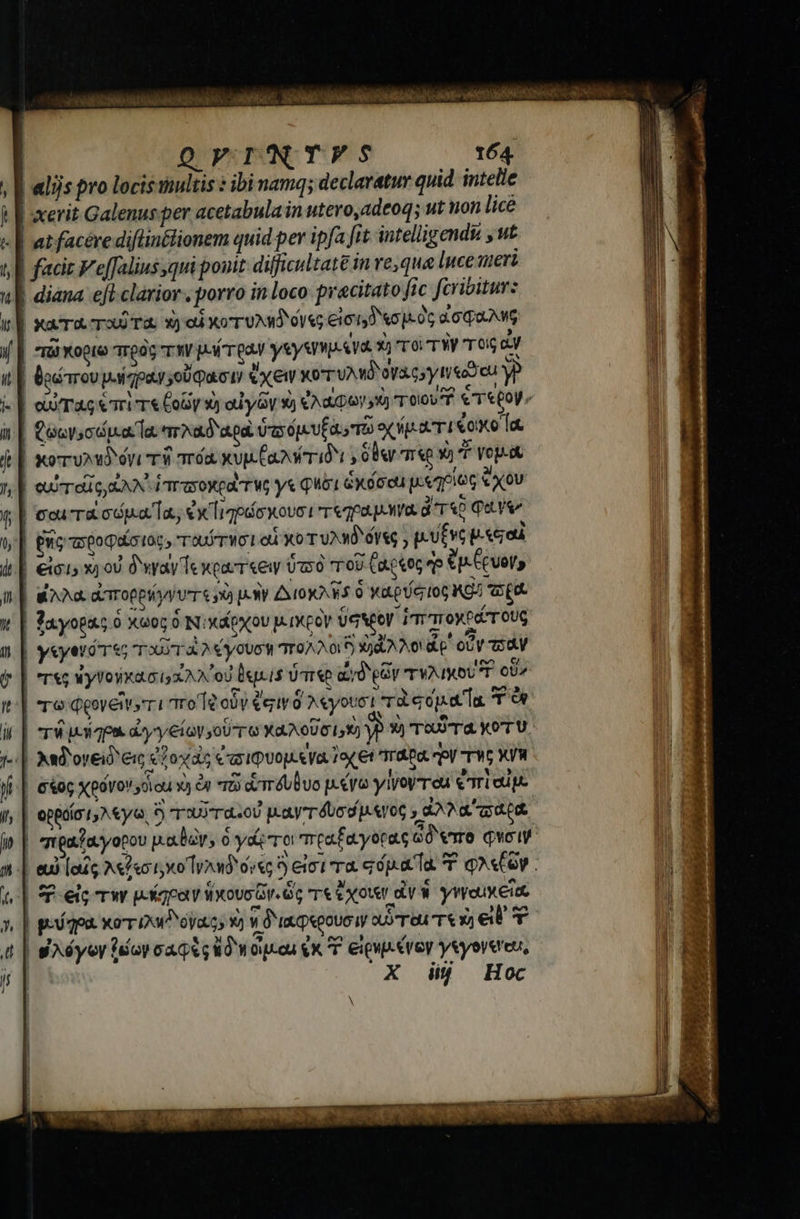 QVINTVS 164
alijs pro locis multis : ibi namq; declaratur quid intelle
xerit Galenus per acetabula in utero, adeoq; ut non lice
at facere distinctionem quid per ipsa sit intelligendũ , ut
facit Vessalius, qui ponit difficultatẽ in re, quæ luce meri
diana est clarior. porro in loco præcitato sic scribitur:
κατὰ ταῦτα καὶ αἱ κοτυληδόνες εἰσι, δεσμὸς ἀσφαλὴς
τῷ κορίῳ πρὸς τὴν μήτραν γεγενημένα καὶ τοι τὴν τοις ἀν
θρώπου μήτραν, οὔ φασιν ἔχειν κοτυληδόνας, γινεσθαι γὰρ
αὐτὰς ἐπὶ τε βοῶν καὶ αἰγῶν καὶ ἐλάφων, καὶ τοιούτ ἑτέρων
ζώων, σώματα πλαδαρὰ ὑπόμυξα, τῷ σχήματι ἐοικότα
κοτυληδόνι τῇ πόα κυμβαλήτιδι , ὅθεν περ καὶ τ νομα
αὐταῖς, ἀλλ' ἱπποκράτης γε φησὶ ὁκόσαι μετρίως ἔχου
σαι τὰ σώματα, ἐκτιτρώσκουσι τετραμηνα ἄτερ φανε
ρῆς προφάσιος, ταύτησι αἱ κοτυληδόνες , μυξης μεσταὶ
εἰσι, καὶ οὐ δυναντε κρατεειν ὑπὸ τοῦ βαρεος τὸ ἔμβρυον,
ἀλλα ἀπορρήγνυτε , καὶ μὴν Διοκλῆς ὁ καρύστιος καὶ πρα
ξαγορας ὁ κωος ὁ Νικάρχου μικρὸν ὕστερον ἱπποκράτους
γεγενότες ταῦτὰ λέγουσιν πολλοὶ δὲ καὶ ἄλλοι ἆρ' οὖν πάν
τες ἠγνοήκασι, ἀλλ' οὐ θεμις ὑπερ ἀνδρῶν τηλικούτ οὕ
τω φρονεῖν, τι ποτε οὖν ἔστιν ὃ λέγουσι τὰ στόματα τ ἐν
τῇ μήτρα ἀγγείων , οὕτω καλοῦσι, καὶ γὰρ καὶ ταῦτα κοτυ
ληδονειδεις ἐξοχάς ἐπιφυομένα ἴσχει παρα τὸν τῆς κυή
σεος χρόνον , οἷαι καὶ ἐν τῷ ἀποθυο μένῳ γίνονται ἐπὶ αἱμ
ορροίσι, λέγω δὲ ταῦτα. οὐ μαντευσάμενος , ἀλλὰ παρὰ
πραξαγορου μαθών, ὁ γάρ τοι πραξαγορας ὧδέ πο φησιν
αὐταῖς λεξεσι, κοτυληδόνες δὲ εἰσι τα στόματα τ φλεβῶν
τ εἰς τὴν μήτραν ἡκουσῶν. ὥς τε ἔχοιεν ἀν ἡ γυναικεία
μήτρα κοτιληδονας, καὶ ἡ διαφερουσιν αὗται τε καὶ εἰθ' τ
ἀλόγων ζώων σαφὲς ἤδη οἶμαι ἐκ τ εἰρημένων γεγονεναι,
X iiij Hoc